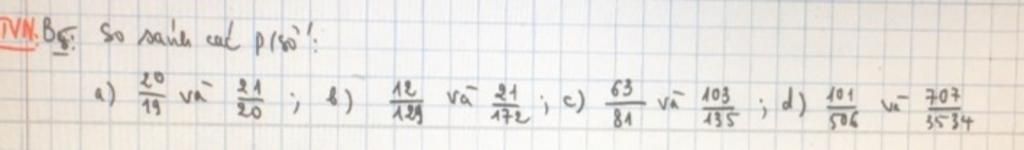 TVN: B5: So sánh các p/số:
a) 20/19 và 21/20 ; b) 12/129 và 21/172 ; c) 63/81 và 103/135 ; d) 101/506 và 707/3534